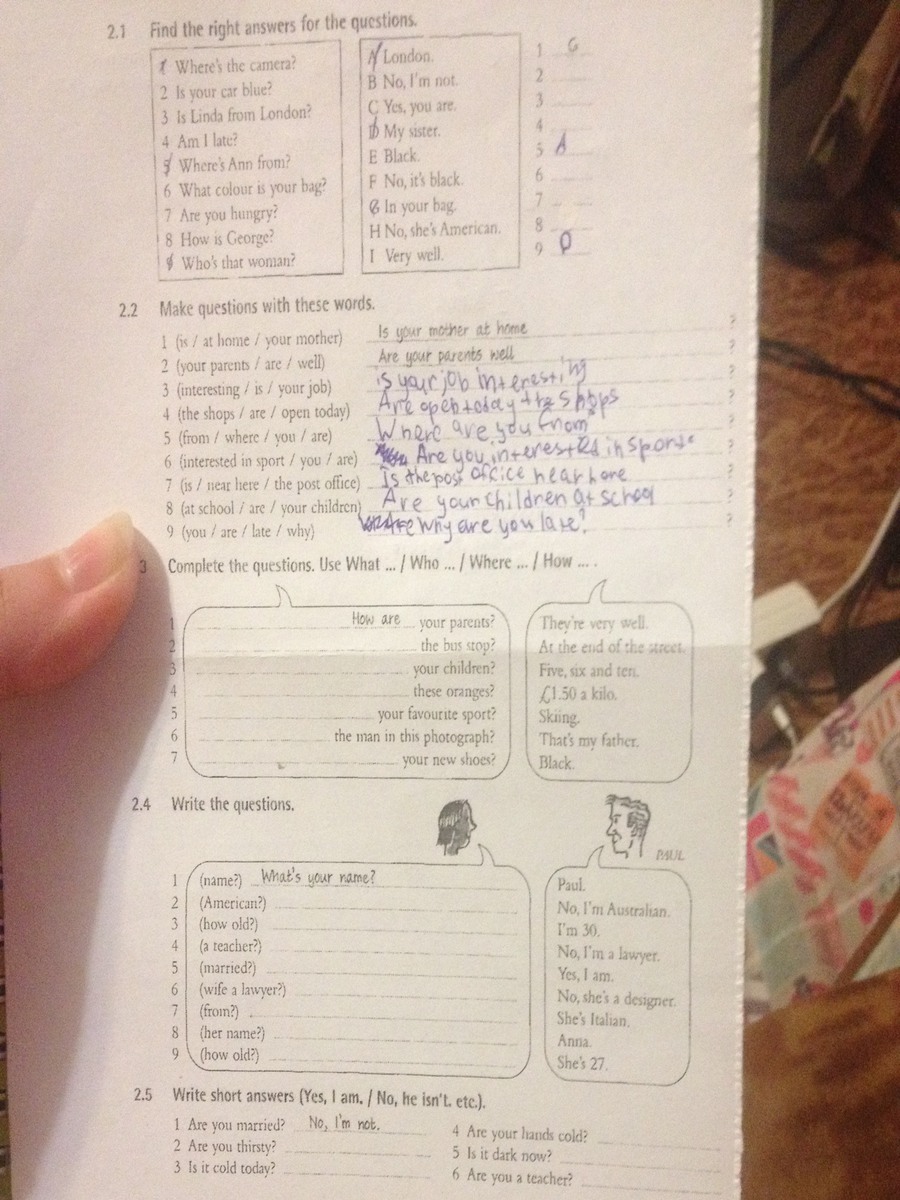 2.1 Find the right answers for the questions.
1 Where's the camera?
2 Is your car blue?
3 Is Linda from London?
4 Am I late?
5 Where's Ann from?
6 What colour is your bag?
7 Are you hungry?
8 How is George?
9 Who's that woman?
A London.
B No, I'm not.
C Yes, you are.
D My sister.
E Black.
F No, it's black.
G In your bag.
H No, she's American.
I Very well.
1 G
2
3
4
5 A
6
7
8
9 D
2.2 Make questions with these words.
1 (is / at home / your mother) Is your mother at home ?
2 (your parents / are / well) Are your parents well ?
3 (interesting / is / your job) is your job interesting ?
4 (the shops / are / open today) Are open today the shops ?
5 (from / where / you / are) Where are you from ?
6 (interested in sport / you / are) Are you interested in sport ?
7 (is / near here / the post office) Is the post office near here ?
8 (at school / are / your children) Are your children at school ?
9 (you / are / late / why) why are you late? ?
3 Complete the questions. Use What ... / Who ... / Where ... / How ... .
1 How are your parents? They're very well.
2 the bus stop? At the end of the street.
3 your children? Five, six and ten.
4 these oranges? £1.50 a kilo.
5 your favourite sport? Skiing.
6 the man in this photograph? That's my father.
7 your new shoes? Black.
2.4 Write the questions.
PAUL
1 (name?) What's your name? Paul.
2 (American?) No, I'm Australian.
3 (how old?) I'm 30.
4 (a teacher?) No, I'm a lawyer.
5 (married?) Yes, I am.
6 (wife a lawyer?) No, she's a designer.
7 (from?) She's Italian.
8 (her name?) Anna.
9 (how old?) She's 27.
2.5 Write short answers (Yes, I am. / No, he isn't. etc.).
1 Are you married? No, I'm not.
2 Are you thirsty?
3 Is it cold today?
4 Are your hands cold?
5 Is it dark now?
6 Are you a teacher?